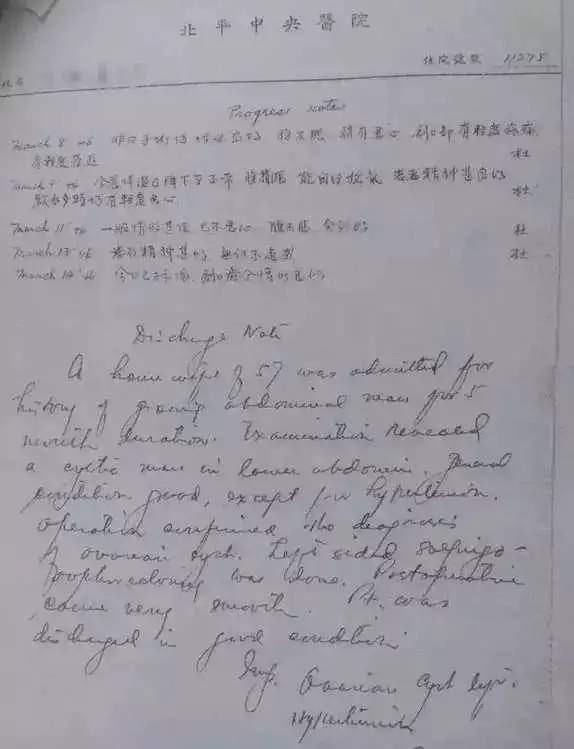 北平中央醫院
住院號數 11278
姓名
Progress notes
March 8 '46 昨日手術後 腹不脹 稍有惡心 創口部有輕度疼痛
杜
March 9 '46 今晨 患者精神甚好
飲水多時仍有輕度惡心 杜
March 11 '46 一般情形甚佳 已不惡心 腹不脹 杜
March 13 '46 患者精神甚好 無何不適 杜
March 14 '46 今日已拆線 創口癒合情形良好
Discharge Note
A housewife of 57 was admitted for
history of growing abdominal mass for 5
month duration. Examination revealed
a cystic mass in lower abdomen. General
condition good, except for hypertension.
operation confirmed the diagnosis
of ovarian cyst. Left sided salpingo-
oophorectomy was done. Postoperative
course very smooth. Pt. was
discharged in good condition.
Imp. Ovarian Cyst left.
Hypertension